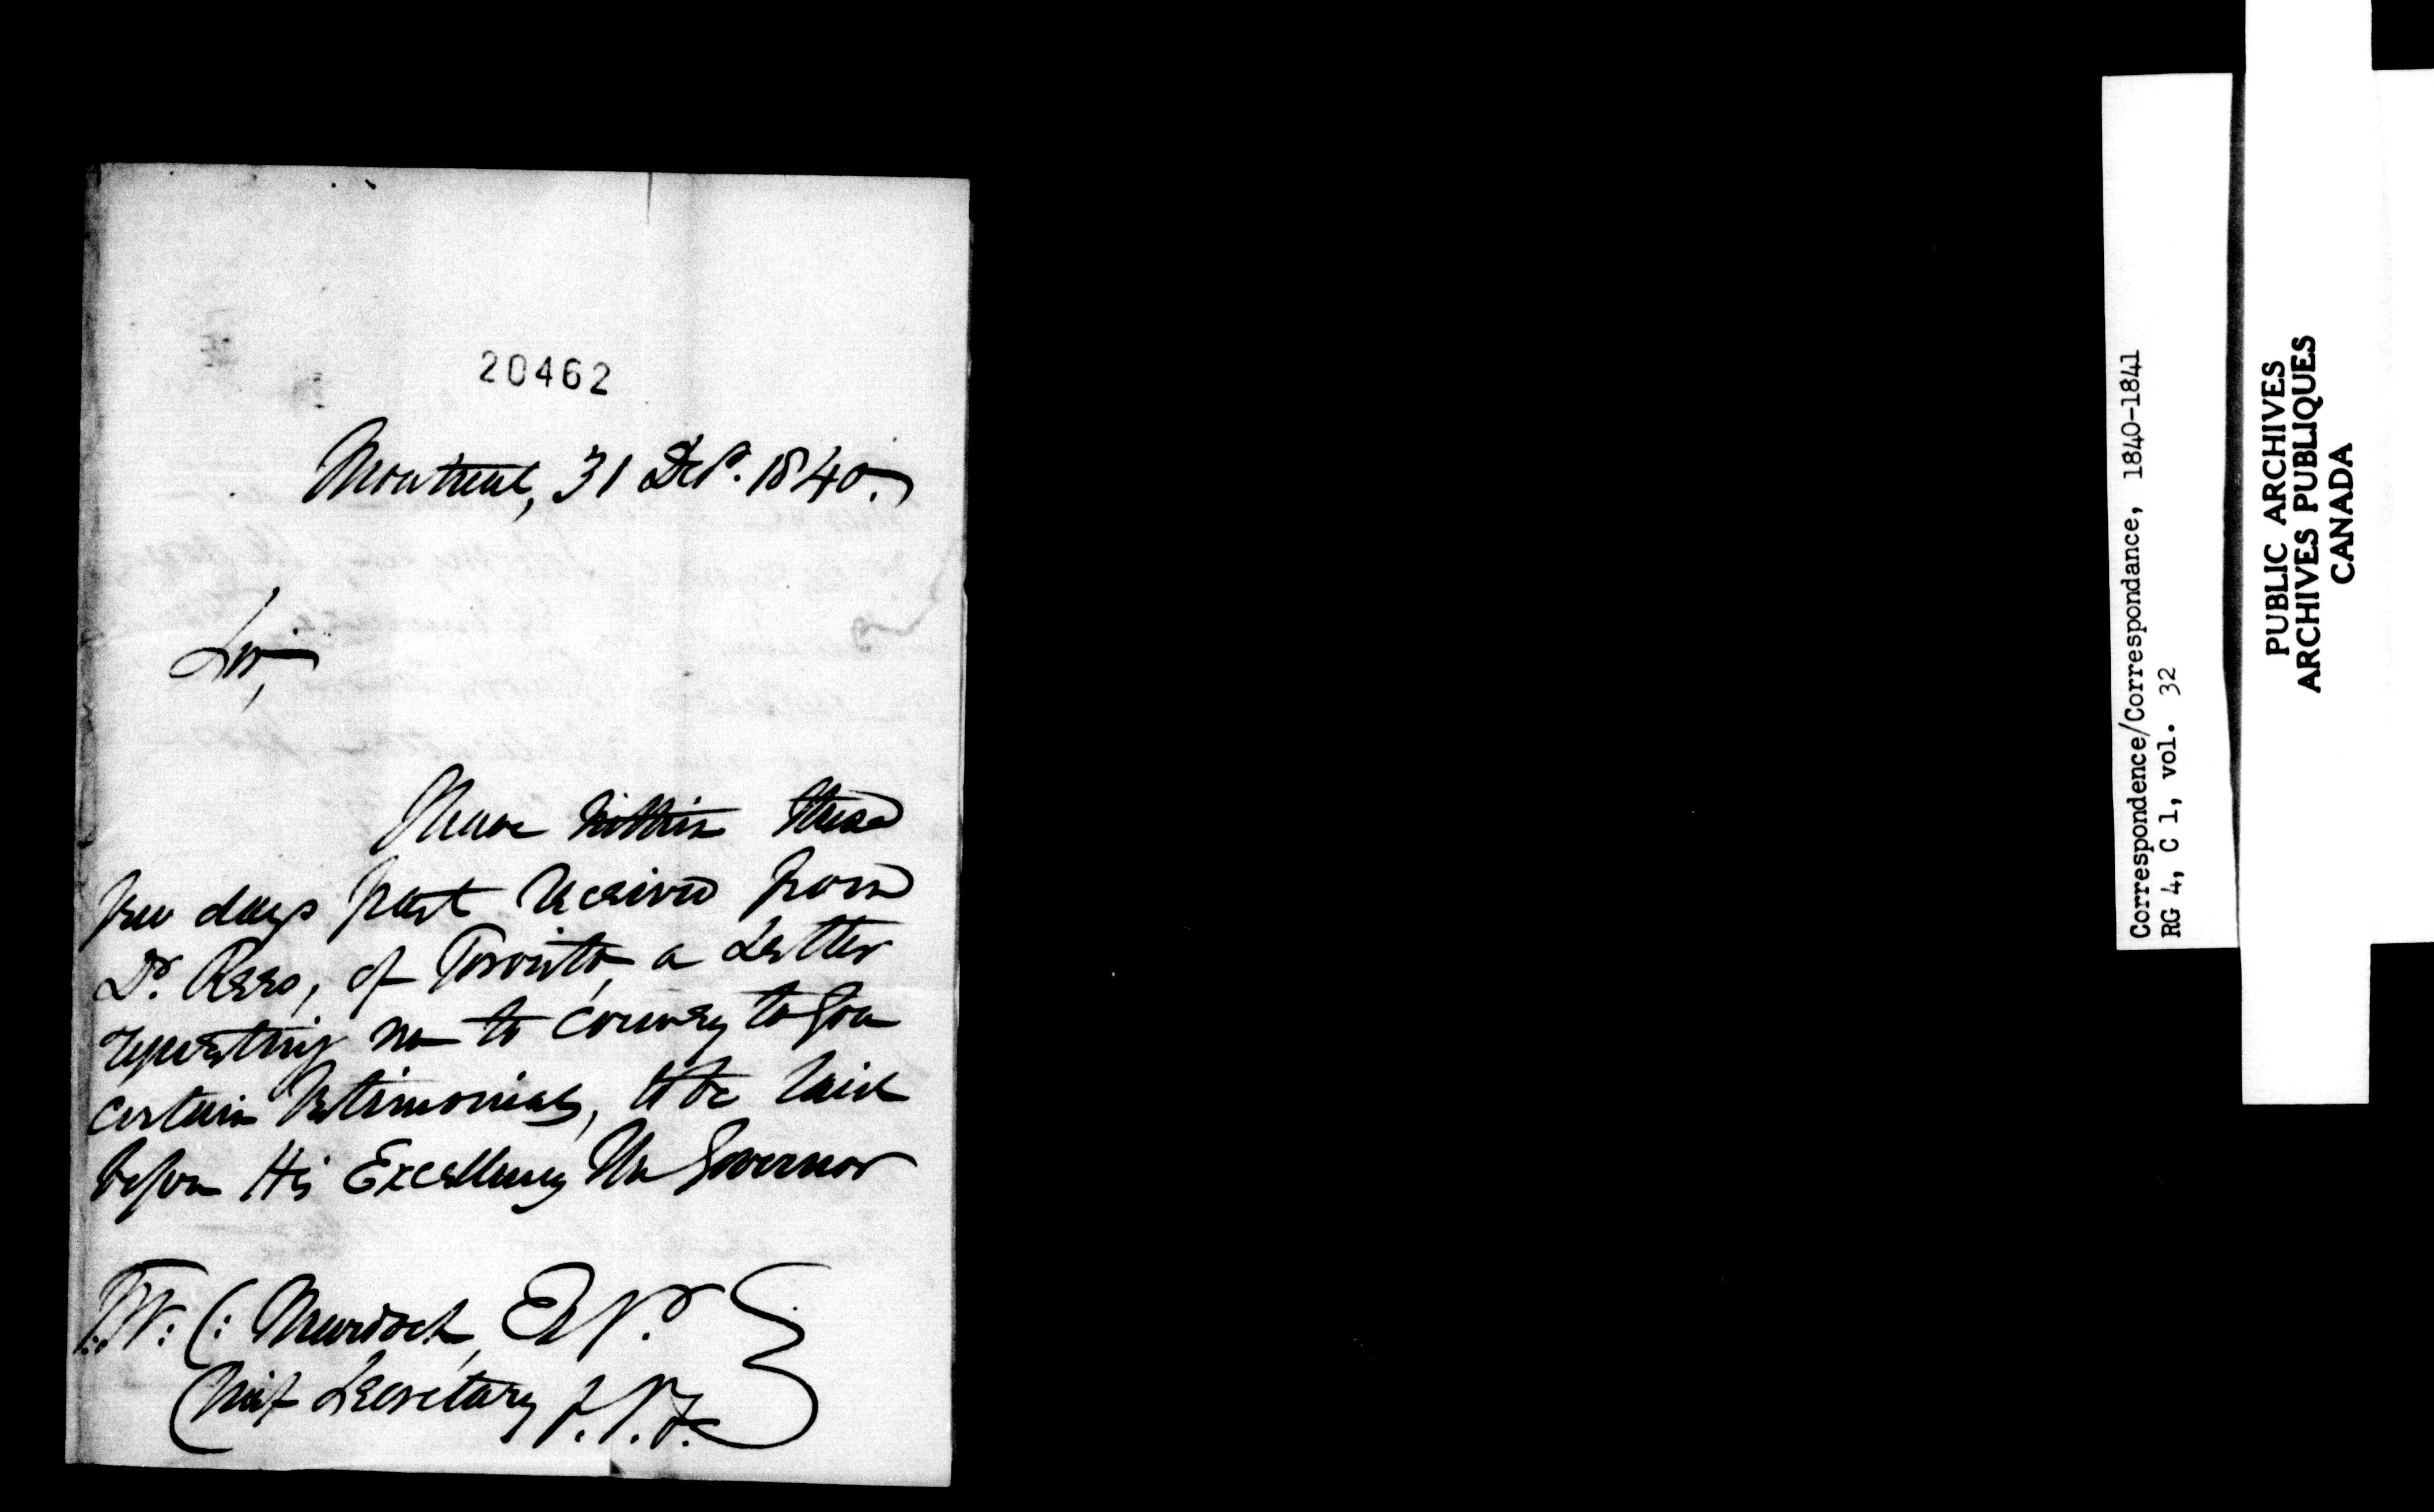 20462
Montreal, 31 Decr. 1840.
Sir,
I have within these
few days past received from
Dr. Rees, of Toronto, a Letter
requesting me to convey to you
certain Testimonials, to be laid
before His Excellency The Governor
T. W: C: Murdoch, Esqr.
Chief Secretary &. &. &c
Correspondence/Correspondance, 1840-1841
RG 4, C 1, vol. 32
PUBLIC ARCHIVES
ARCHIVES PUBLIQUES
CANADA